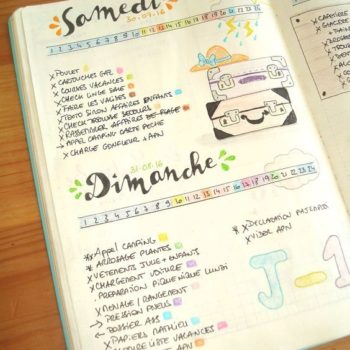 Samedi
30.07.16
1 2 3 4 5 6 7 8 9 10 11 12 13 14 15 16 17 18 19 20 21 22 23 24
x Poulet
x Cartouches gaz
x Courses vacances
x Check linge sale
x Faire les valises
x Torto sinon affaires enfants
x Check trousse secours
x Rassembler affaires de plage
→ Appel camping carte peche
x Charge gonfleur + APN
Dimanche
31.07.16
1 2 3 4 5 6 7 8 9 10 11 12 13 14 15 16 17 18 19 20 21 22 23 24
Appel camping
x Arrosage plantes
x Vêtements Julie + enfants
x Chargement voiture
Préparation pique nique lundi
x Ménage / rangement
→ Pression pneus
← Dossier
x Papiers Mathieu
liste vacances
APN
x Déclaration
x Vider APN
J-1